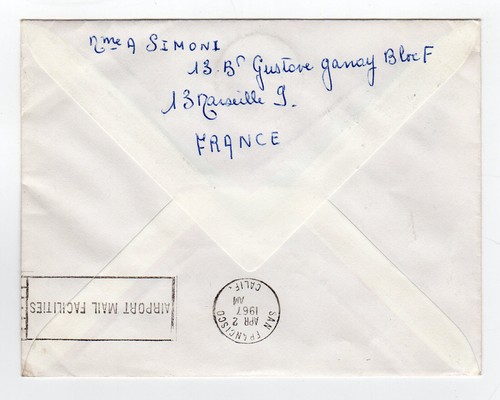 Mme A SIMONI
13. Bd Gustave Ganay Bloc F
13 Marseille 9.
FRANCE
AIRPORT MAIL FACILITIES
SAN FRANCISCO
APR 2
1967
AM
CALIF.